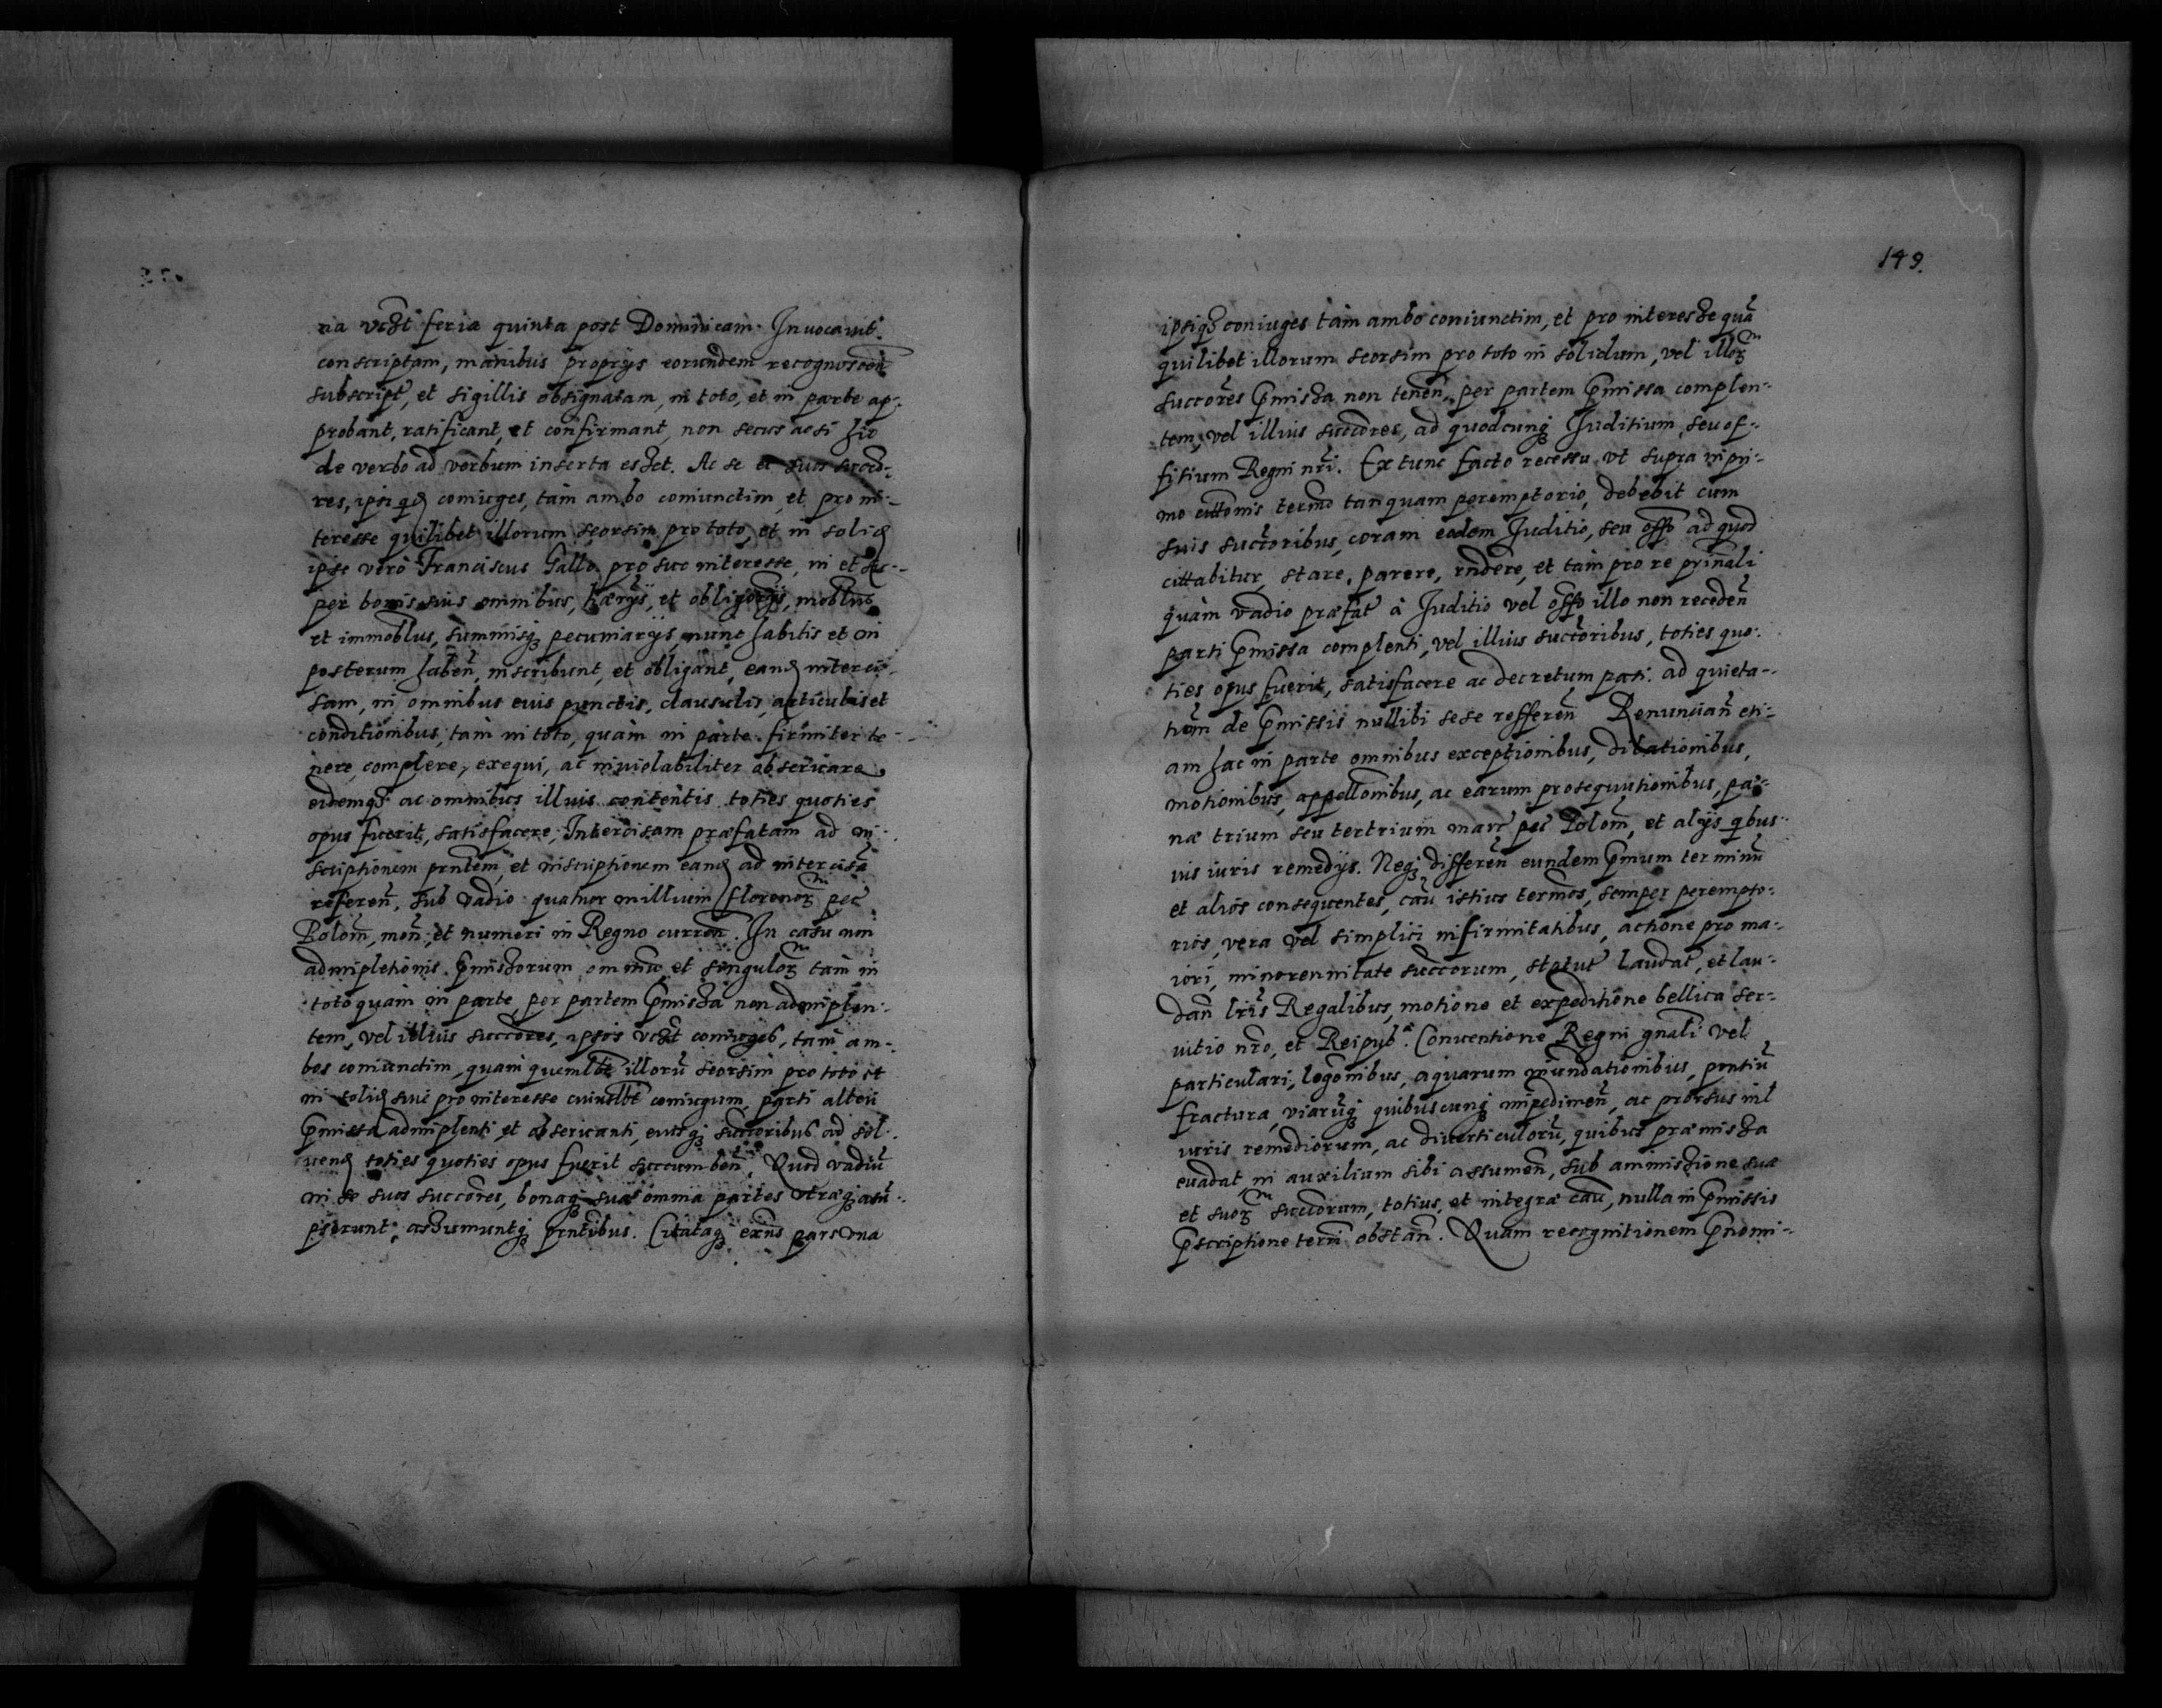 ria vczt feria quinta post Dominicam Inuocauit
conscriptam, manibus proprijs eorundem recognoscen̄
subscript, et sigillis obsignatam, in toto, et in parte ap-
probant, ratificant, et confirmant, non secus ac si hic
de verbo ad verbum inserta esset. Ac se et suos succō-
res, ipsi qd coniuges, tàm ambo coniunctim, et pro in-
teresse quilibet illorum seorsim pro toto, et in solid
ipse verò Franciscus Gallo pro suo interesse, in et su-
per bonis suis omnibus, hærijs, et obligorijs, moblbus
et immoblbus, summisq pecuniarijs, nunc habitis et in
posterum haben̄, inscribunt, et obligant, eand interci-
sam, in omnibus euis punctis, clausulis, articulis et
conditionibus, tàm in toto, quàm in parte firmiter te-
nere, complere, exequi, ac inuiolabiliter obseruare
eidemqz ac omnibus illius contentis toties quoties
opus fuerit, satisfacere, Intercisam præfatam ad in-
scriptionem pntem, et inscriptionem eand ad intercisā
referen̄, sub vadio quatuor millium florenorᵐ pec
Polon̄, mon̄, et numeri in Regno curren̄. In casu non
adimpletionis p̄missorum omniū et singulorᵐ tàm in
toto quàm in parte, per partem p̄missa non adimplen-
tem, vel illius succōres, ipsos vczt coniuges, tàm am-
bos coniunctim, quàm quemlbt illorū seorsim pro toto et
in solid siue pro interesse cuiuslbt coniugum, parti alteri
p̄missa adimplenti et obseruanti, eiusq succōribus ad sol-
uend toties quoties opus fuerit succumben̄, Quod vadiū
in se suos succōres, bonaq sua omnia partes vtræq asū-
pserunt, assumuntq pntibus. Citataq exn̄s pars vna
149.
ipsiqz coniuges tàm ambo coniunctim, et pro interesse quā
quilibet illorum seorsim pro toto in solidum, vel illorᵐ
succōres p̄missa non tenen̄, per partem p̄missa complen-
tem, vel illius succōres, ad quodcunq Iuditium, seu of-
fitium Regni nrī. Ex tunc facto recessu vt supra in pri-
mo cittōnis termō tanquam peremptorio, debebit cum
suis succōribus, coram eodem Iuditio, seu offō ad quod
cittabitur, stare, parere, rn̄dere, et tàm pro re prin̄ali
quàm vadio præfat à Iuditio vel offō illo non receden̄
parti p̄missa complenti, vel illius succōribus, toties quo-
ties opus fuerit, satisfacere ac decretum pati. ad quieta-
tiōm de p̄missis nullibi sese refferen̄ Renuncian̄ eti-
am hac in parte omnibus exceptionibus, dilationibus,
motionibus, appellōnibus, ac earum prosequutionibus, pœ-
næ trium seu tertrium marc pec Polon̄, et alijs qbus-
uis iuris remedijs. Neq differen̄ eundem p̄mum terminū
et aliòs consequentes, caū istius termōs, semper perempto-
rios, vera vel simplici infirmitatibus, actione pro ma-
iori, minorennitate succōrum, statut laudat, et lau-
dan̄ lrīs Regalibus, motione et expeditione bellica ser-
uitio nrō, et Reipubᵃ. Conuentione Regni gn̄ali vel
particulari, legōnibus, aquarum inundationibus, pontiū
fractura, viarūq quibuscunq impedimen̄, ac prorsus nil
iuris remediorum, ac diuerticulorū, quibus præmissa
euadat, in auxilium sibi assumen̄, sub ammissione suæ
et suorᵐ succōrum, totius, et integræ caū, nulla in p̄missis
p̄scriptione terrī obstan̄. Quam recognitionem p̄nomi-